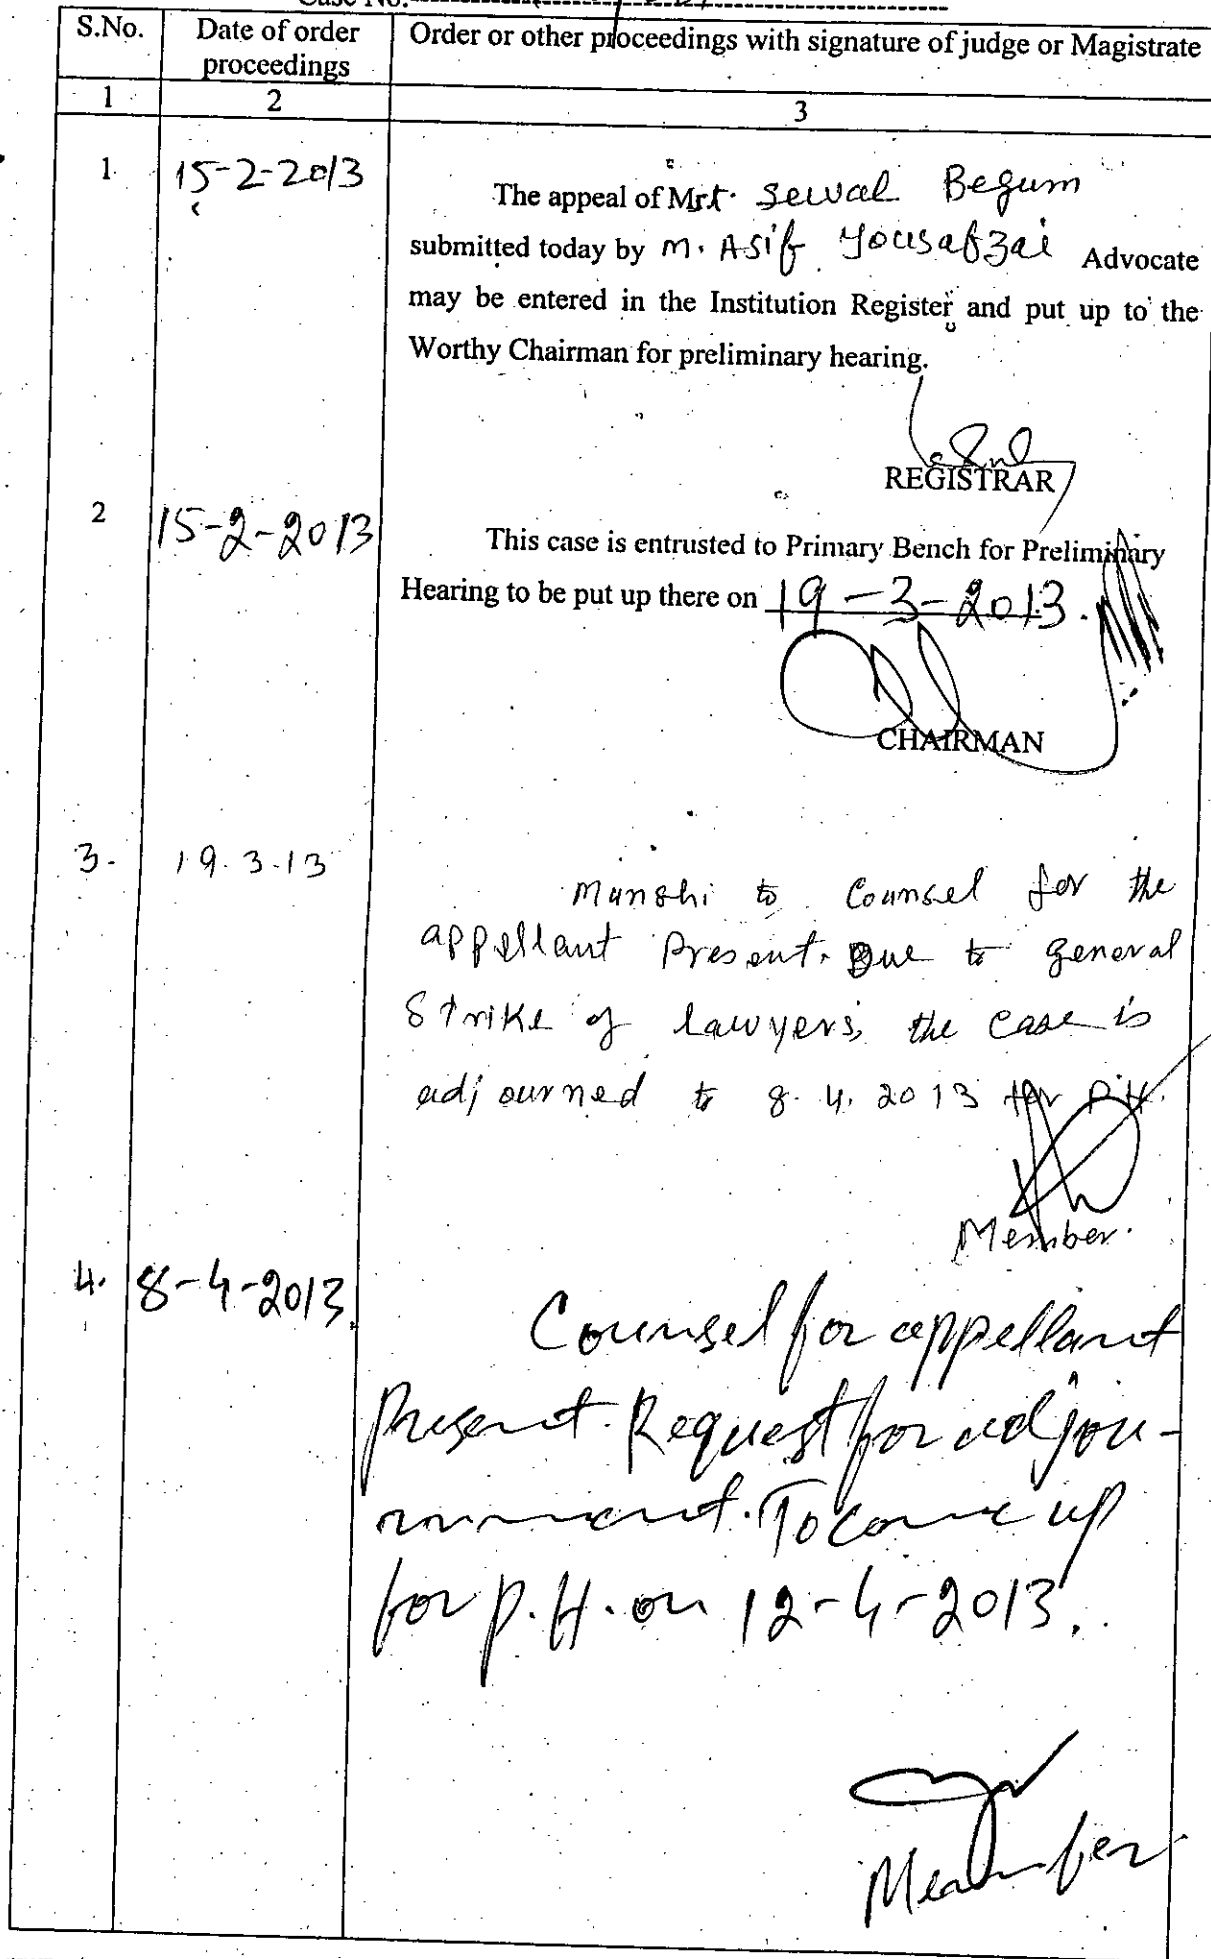 Case No.
S.No. Date of order proceedings Order or other proceedings with signature of judge or Magistrate
1 2 3
1 15-2-2013 The appeal of Mst. Sewal Begum
submitted today by M. Asif Yousafzai Advocate
may be entered in the Institution Register and put up to the
Worthy Chairman for preliminary hearing.
REGISTRAR
2 15-2-2013 This case is entrusted to Primary Bench for Preliminary
Hearing to be put up there on 19-3-2013.
CHAIRMAN
3. 19.3.13 Munshi to Counsel for the
appellant Present. Due to general
Strike of lawyers, the case is
adjourned to 8.4.2013 for P.H.
Member.
4. 8-4-2013. Counsel for appellant
Present. Request for adjou-
rnment. To come up
for P.H. on 12-4-2013.
Member